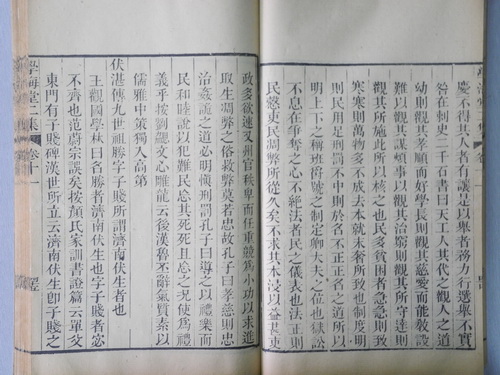 慶不得其人者有讓是以畢者務力行選舉不實
咎在刺史二千石書曰天工人其代之觀人之道
幼則觀其孝順而好學長則觀其慈愛而能教設
難以觀其謀煩事以觀其治窮則觀其所守達則
觀其所施此所以核之也民多貧困者急急則致
寒寒則萬物多不成去本就末奢所致也制度明
則民用足刑罰不中則於名不正正名之道所以
明上下之稱班爵號之制定卿大夫之位也獄訟
不息在爭奪之心不絕法者民之儀表也法正則
民愨吏民凋弊所從久矣不求其本浸以益甚吏
政多欲速又州官秩卑而任重競為小功以求進
取生凋弊之俗救弊莫若忠故孔子曰孝慈則忠
治姦詭之道必明慎刑罰孔子曰導之以禮樂而
民和睦說以犯難民忘其死死且忘之況使為禮
義乎按劉勰文心雕龍云後漢魯丕辭氣質素以
儒雅中策獨入高第
伏湛傳九世祖勝字子賤所謂濟南伏生者也
王觀國學林曰名勝者濟南伏生也字子賤者宓
不齊也范蔚宗誤矣按顏氏家訓書證篇云單父
東門有子賤碑漢世所立云濟南伏生卽子賤之
學海堂二集
卷十一